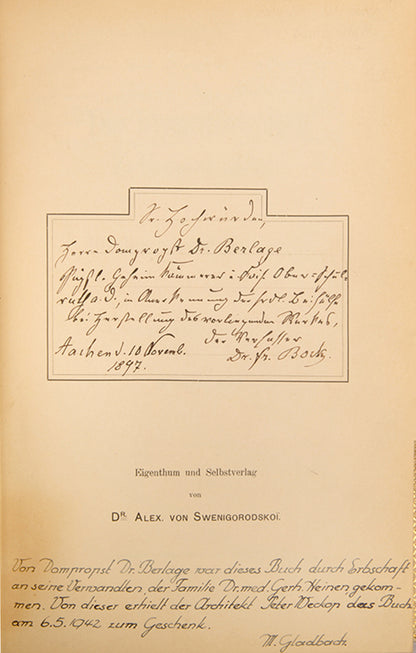 Sr. Hochwürden,
Herrn Dompropst Dr. Berlage
Päpstl. Geheim Kämmerer u. Kaisl. Oberschul-
rath a. D., in Anerkennung der frdl. Beihülfe
bei Herstellung des vorliegenden Werkes,
der Verfasser
Aachen d. 10 Novemb.
Dr. Fr. Bock.
1897.
Eigenthum und Selbstverlag
von
Dr. Alex. von Swenigorodskoï.
Von Dompropst Dr. Berlage war dieses Buch durch Erbschaft
an seine Verwandten, der Familie Dr. med. Gerh. Heinen gekom-
men. Von dieser erhielt der Architekt Peter Weckop das Buch
am 6.5.1942 zum Geschenk.
M. Gladbach.